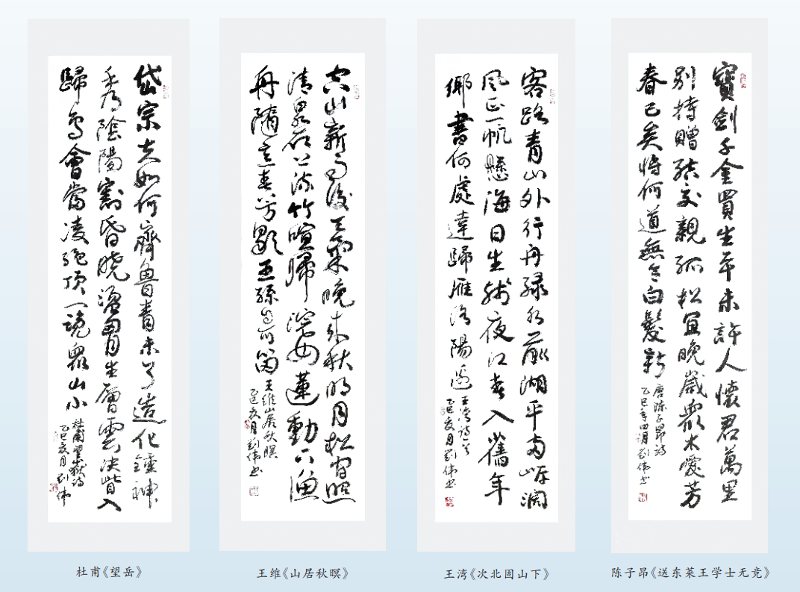 岱宗夫如何齊魯青未了造化鍾神
秀陰陽割昏曉盪胸生層雲決眥入
歸鳥會當凌絕頂一覽衆山小
杜甫望嶽詩
乙巳夏月刘伟
杜甫《望岳》
空山新雨後天氣晚來秋明月松間照
清泉石上流竹喧歸浣女蓮動下漁
舟隨意春芳歇王孫自可留
王维山居秋暝
乙巳夏月刘伟书
王维《山居秋暝》
客路青山外行舟绿水前潮平两岸阔
風正一帆懸海日生残夜江春入舊年
鄉書何處達歸雁洛陽邊
乙巳夏月刘伟书
王湾《次北固山下》
寶劍千金買生平未許人懷君萬里
别持贈結交親孤松宜晚歲衆木愛芳
春已矣將何道無令白髮新
唐陈子昂诗
乙巳年四月刘伟书
陈子昂《送东莱王学士无竞》